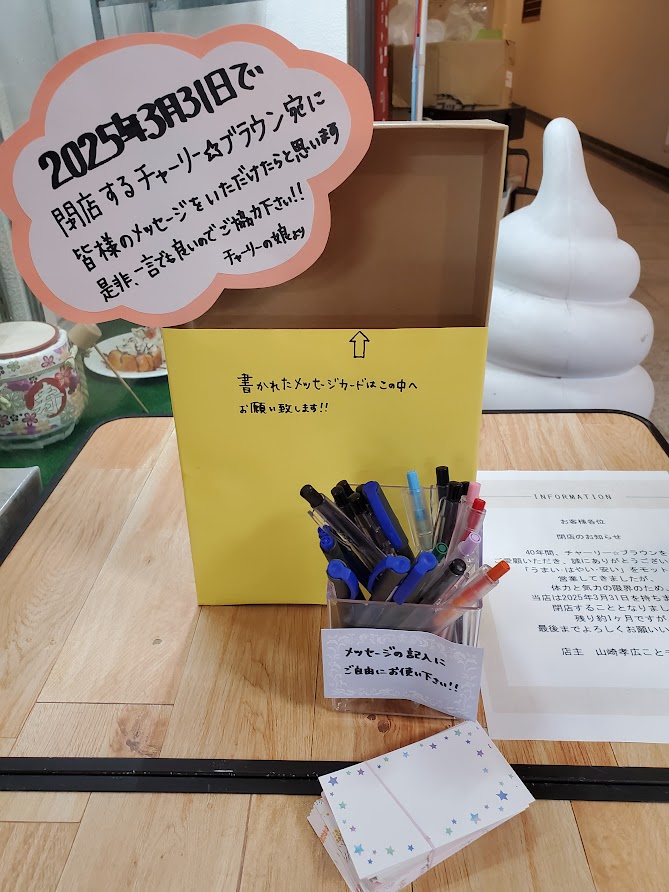 2025年3月31日で
閉店するチャーリー☆ブラウン宛に
皆様のメッセージをいただけたらと思います
是非、一言でも良いのでご協力下さい!!
チャーリーの娘より
書かれたメッセージカードはこの中へ
お願い致します!!
メッセージの記入に
ご自由にお使い下さい!!
INFORMATION
お客様各位
閉店のお知らせ
40年間、チャーリー☆ブラウンを
ご愛顧いただき、誠にありがとうござい
「うまい・はやい・安い」をモット
営業してきましたが、
体力と気力の限界のため、
当店は2025年3月31日を持ちま
閉店することとなりまし
残り約1ヶ月ですが
最後までよろしくお願いい
店主 山崎孝広こと